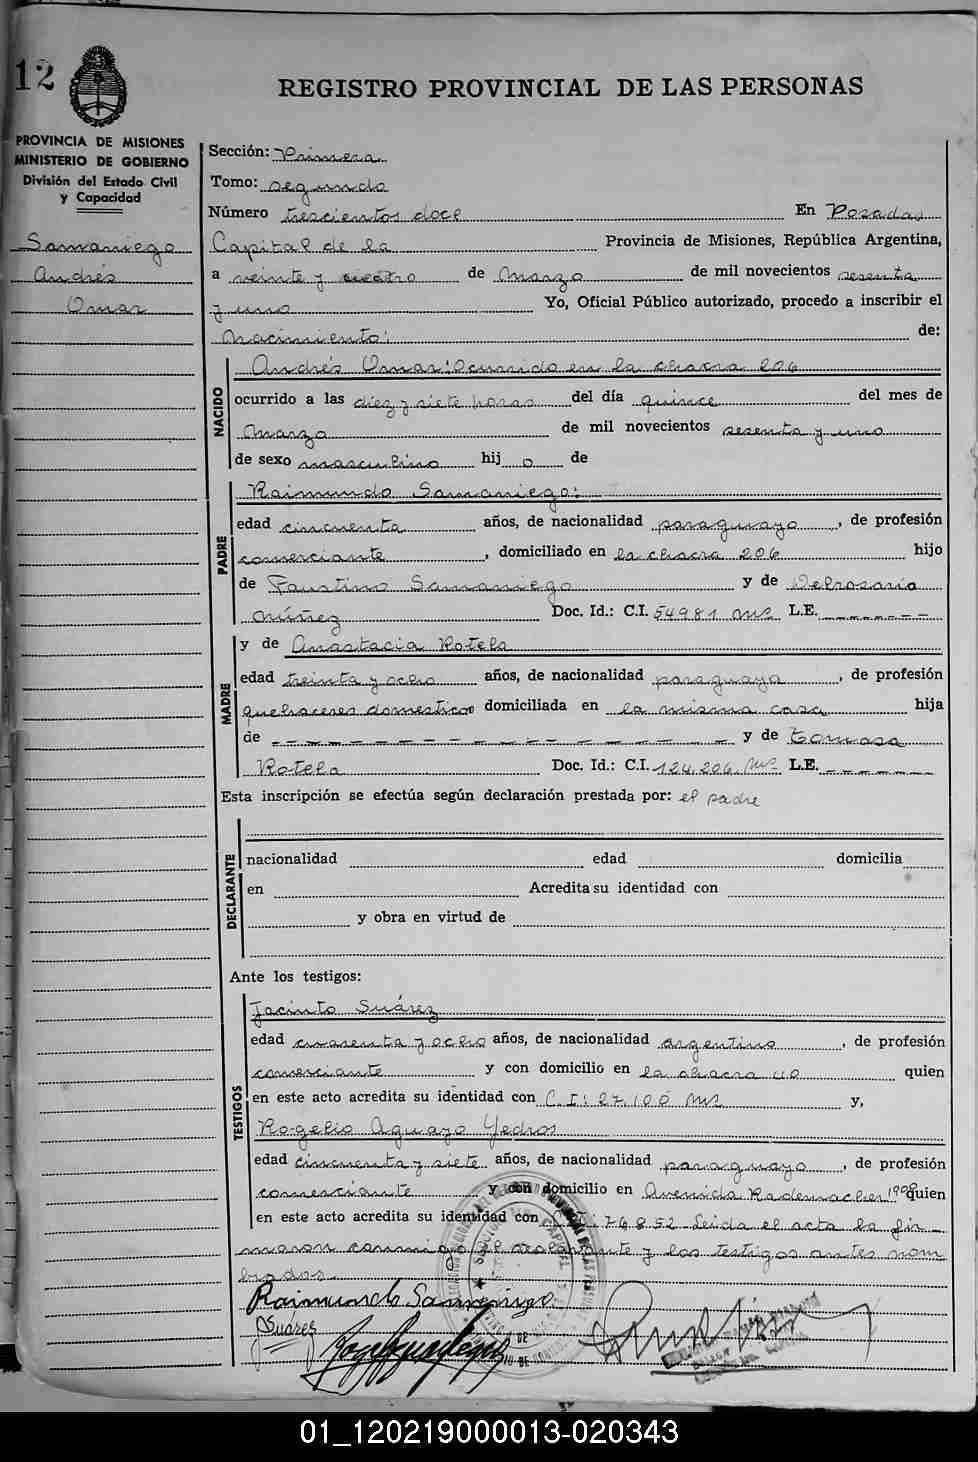 12
REGISTRO PROVINCIAL DE LAS PERSONAS
PROVINCIA DE MISIONES
MINISTERIO DE GOBIERNO
División del Estado Civil
y Capacidad
Samaniego
Andrés
Omar
Sección: Primera
Tomo: segundo
Número trescientos doce En Posadas
Capital de la Provincia de Misiones, República Argentina,
a veinte y cuatro de Marzo de mil novecientos sesenta
y uno Yo, Oficial Público autorizado, procedo a inscribir el
Nacimiento: de:
NACIDO
Andrés Omar: Ocurrido en la chacra 206
ocurrido a las diez y siete horas del día quince del mes de
Marzo de mil novecientos sesenta y uno
de sexo masculino hijo de
PADRE
Raimundo Samaniego:
edad cincuenta años, de nacionalidad paraguayo, de profesión
comerciante, domiciliado en la chacra 206 hijo
de Faustino Samaniego y de Delrosario
Núñez Doc. Id.: C.I. 54981 Ms L.E. - - - - - - -
MADRE
y de Anastacia Rotela
edad treinta y ocho años, de nacionalidad paraguaya, de profesión
quehaceres domesticos domiciliada en la misma casa hija
de - - - - - - - - - - - - - - - - y de Tomasa
Rotela Doc. Id.: C.I. 124.206. Ms L.E. - - - - - - -
Esta inscripción se efectúa según declaración prestada por: el padre
DECLARANTE
nacionalidad edad domicilia
en Acredita su identidad con
y obra en virtud de
Ante los testigos:
TESTIGOS
Jacinto Suárez
edad cuarenta y ocho años, de nacionalidad argentino, de profesión
comerciante y con domicilio en la chacra 40 quien
en este acto acredita su identidad con C.I: 27.100 Ms y,
Rogelio Aguayo Yedros
edad cincuenta y siete años, de nacionalidad paraguayo, de profesión
comerciante y con domicilio en Avenida Rademacher quien
en este acto acredita su identidad con 76852 Leida el acta la fir-
maron conmigo el declarante y los testigos antes nom
brados.
Raimundo Samaniego
J Suárez
01_120219000013-020343